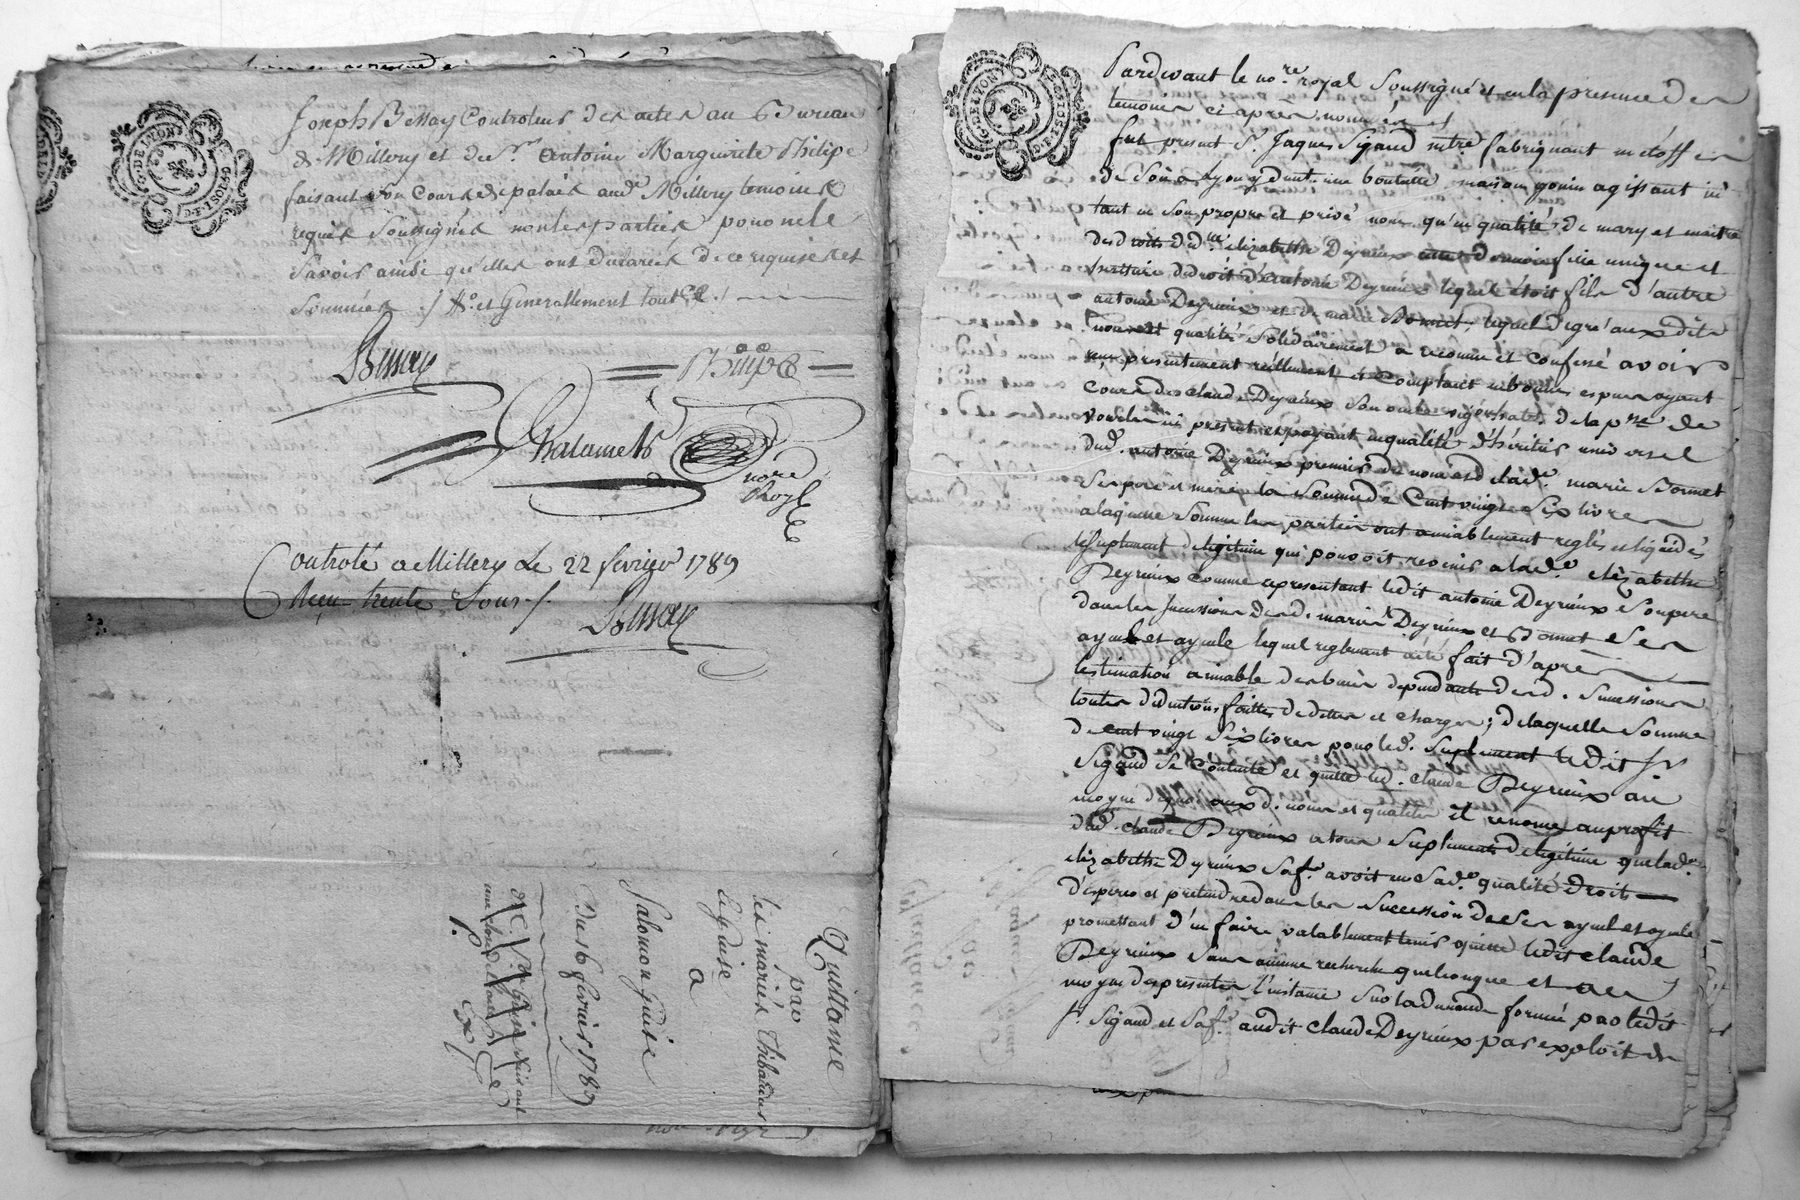 Joseph Bessay Controleur des actes au Bureau
de Millery et de Sr. Antoine Marguerite Philipe
faisant son Cours de palais aud. Millery temoins
requis Soussignés non les parties pour ne le
Savoir ainsi qu'elles ont declarées de ce requises et
Sommées ./. et Generallement tout
Bessay
Chalamets
nore
Royl
Controlé a Millery Le 22 fevrier 1789
Reçu trente Sous ./.
Bessay
Quittance
par
les mariés Thibaudier
Leguise
a
Salomon Guise
Du 16 fevrier 1789
G. DE LYON
Pardevant le nore. royal Soussigné et en la presence des
temoins ci après nommés et
fut present Sr. Jaques Sigaud mtre fabriquant en étoffes
de Soie a Lyon y demt. rue boutette maison gonin agissant
tant en Son propre et privé nom qu'en qualité de mary et maitre
des droits de dlle. elizabethe Deyrieux fille unique et
heritiere de droit d'antoine Deyrieux lequel étoit fils d'autre
antoine Deyrieux et de marie Bonnet, lequel de gré aux dits
noms et qualités Solidairement a reconnu et confessé avoir
reçu presentement réellement et Comptant en bonnes especes ayant
Cours de Claude Deyrieux Son oncle de la psse. de
Vourles ici present et payant en qualité d'héritier universel
dud. antoine Deyrieux premier du nom et de lad. marie Bonnet
Ses pere et mere la Somme de Cent vingt Six livres
a laquelle Somme les parties ont amiablement reglés et liquidés
le Suplement de legitime qui pouvoit revenir a lad. elizabethe
Deyrieux comme representant ledit antoine Deyrieux Son pere
dans les Successions desd. mariés Deyrieux et Bonnet Ses
ayeul et ayeule lequel reglement a été fait d'après
l'estimation amiable des biens dependants desd. Successions
toutes deductions faittes de dettes et charges; de laquelle Somme
de cent vingt Six livres pour led. Suplement ledit Sr.
Sigaud Se Contente et quitte led. Claude Deyrieux au
moyen de quoi aux d. noms et qualités il renonce au profit
dud. Claude Deyrieux a tous Suplements de legitime que lad.
elizabethe Deyrieux Sa fe. avoit en Sad. qualité Droit
d'esperer et pretendre dans les Succession de Ses ayeul et ayeule
promettant d'en faire valablement tenir quitte ledit Claude
Deyrieux Sans aucune recherche quelconque et au
moyen des presentes l'instance Sur la demande formée par ledit
Sr. Sigaud et Sa fe. audit Claude Deyrieux par exploit du